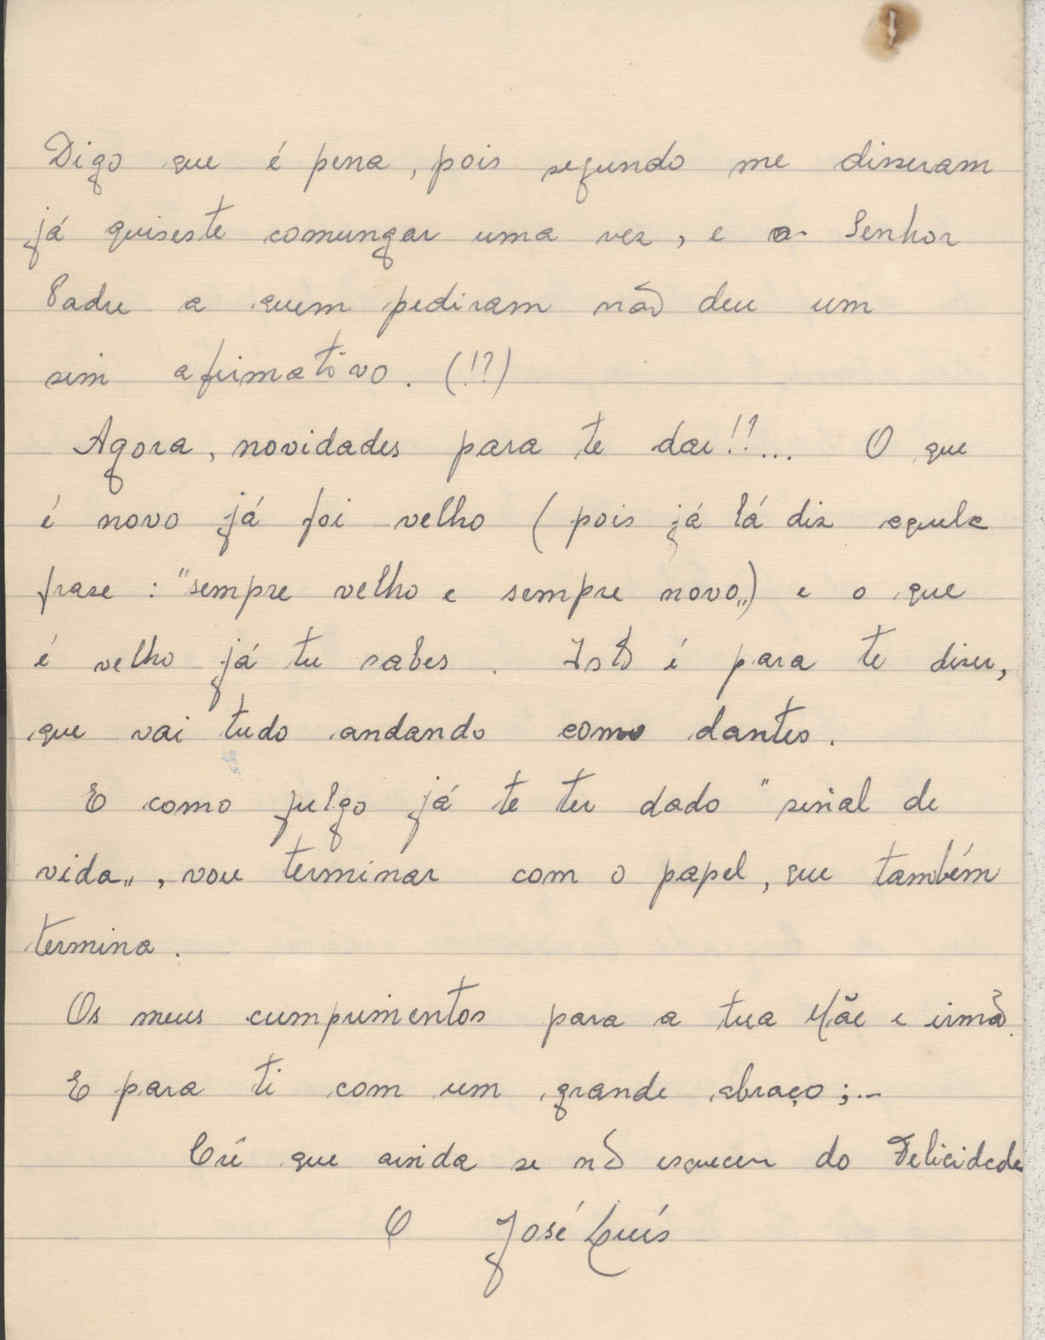 Digo que é pena, pois segundo me disseram
já quiseste comungar uma vez, e o Senhor
Padre a quem pediram não deu um
sim afirmativo. (!?)
Agora, novidades para te dar!!... O que
é novo já foi velho (pois já lá diz aquela
frase: "sempre velho e sempre novo„) e o que
é velho já tu sabes. Isto é para te dizer,
que vai tudo andando como dantes.
E como julgo já te ter dado "sinal de
vida„, vou terminar com o papel, que também
termina.
Os meus cumprimentos para a tua Mãe e irmã.
E para ti com um grande abraço;-
Crê que ainda se não esqueceu do Felicidade
O José Luís